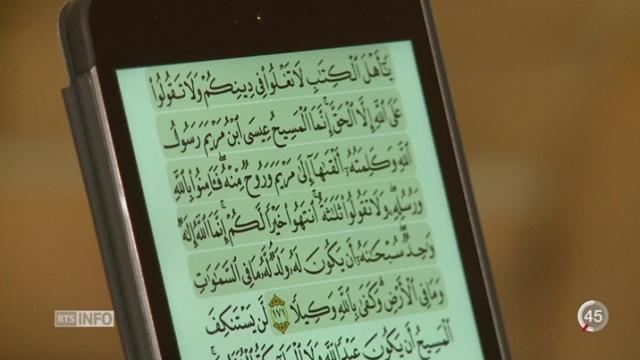 يَٰٓأَهۡلَ ٱلۡكِتَٰبِ لَا تَغۡلُواْ فِي دِينِكُمۡ وَلَا تَقُولُواْ
عَلَى ٱللَّهِ إِلَّا ٱلۡحَقَّۚ إِنَّمَا ٱلۡمَسِيحُ عِيسَى ٱبۡنُ مَرۡيَمَ رَسُولُ
ٱللَّهِ وَكَلِمَتُهُۥٓ أَلۡقَىٰهَآ إِلَىٰ مَرۡيَمَ وَرُوحٞ مِّنۡهُۖ فَـَٔامِنُواْ بِٱللَّهِ
وَرُسُلِهِۦۖ وَلَا تَقُولُواْ ثَلَٰثَةٌۚ ٱنتَهُواْ خَيۡرٗا لَّكُمۡۚ إِنَّمَا ٱللَّهُ إِلَٰهٞ
وَٰحِدٞۖ سُبۡحَٰنَهُۥٓ أَن يَكُونَ لَهُۥ وَلَدٞۘ لَّهُۥ مَا فِي ٱلسَّمَٰوَٰتِ
وَمَا فِي ٱلۡأَرۡضِۗ وَكَفَىٰ بِٱللَّهِ وَكِيلٗا ١٧١ لَّن يَسۡتَنكِفَ
ٱلۡمَسِيحُ أَن يَكُونَ عَبۡدٗا لِّلَّهِ وَلَا
RTS INFO
45